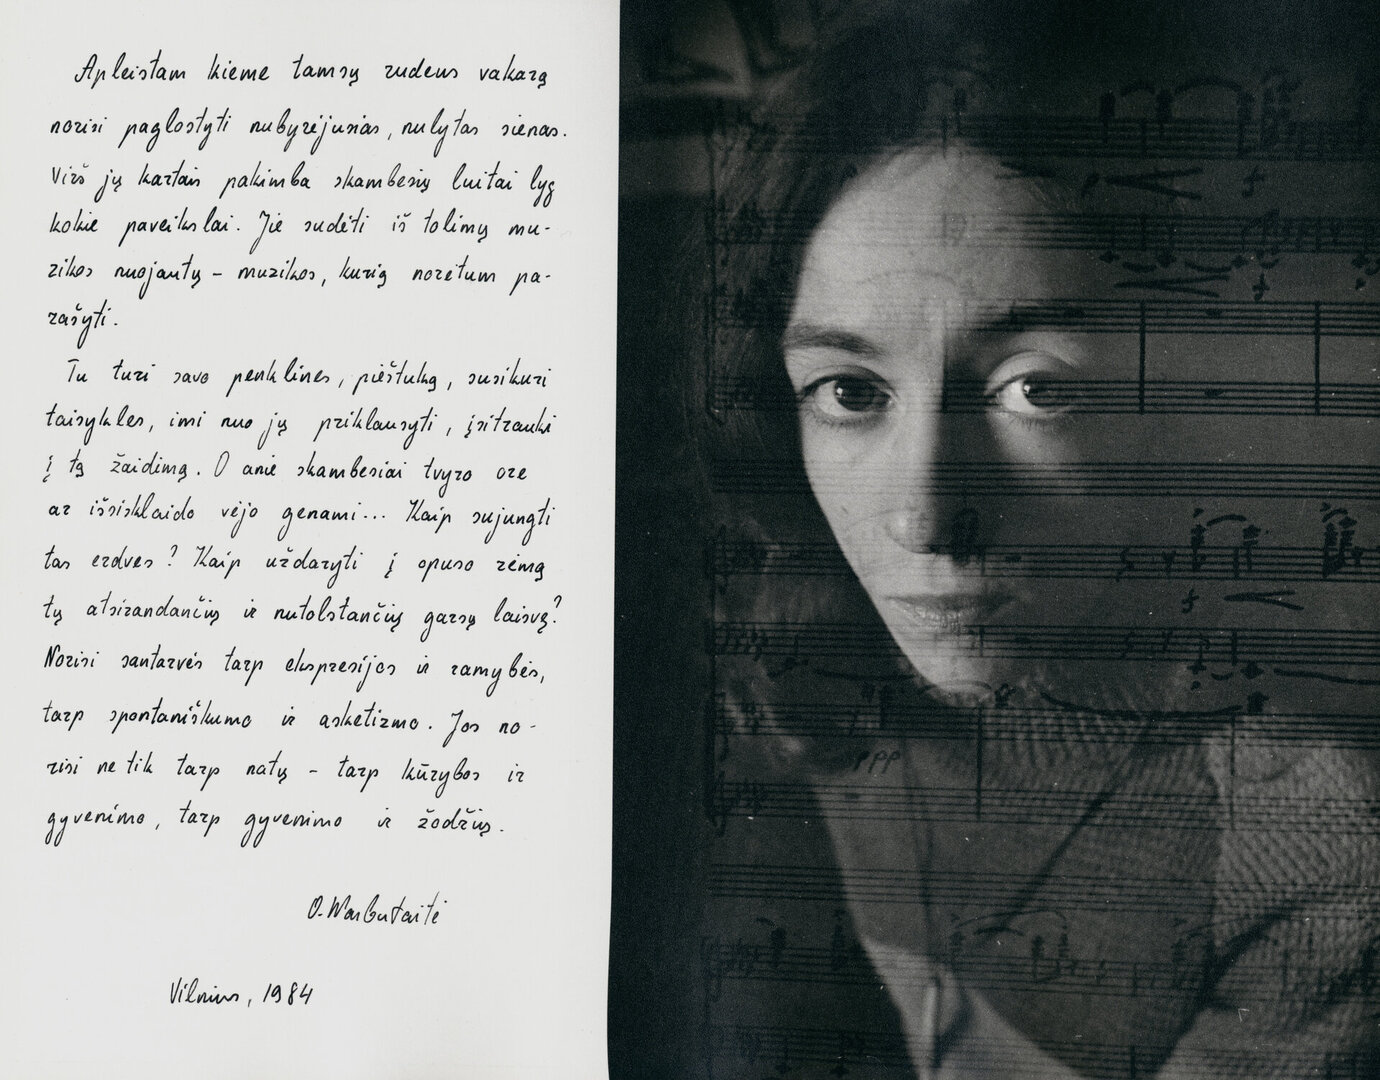 Apleistam kieme tamsų rudens vakarą
norisi paglostyti nubyrėjusias, nulytas sienas.
Virš jų kartais pakimba skambesių luitai lyg
kokie paveikslai. Jie sudėti iš tolimų mu-
zikos nuojautų – muzikos, kurią norėtum pa-
rašyti.
Tu turi savo penklines, pieštuką, susikuri
taisykles, imi nuo jų priklausyti, įsitrauki
į tą žaidimą. O anie skambesiai tvyro ore
ar išsisklaido vėjo genami... Kaip sujungti
tas erdves? Kaip uždaryti į opuso rėmą
tų atsirandančių ir nutolstančių garsų laisvę?
Norisi santarvės tarp ekspresijos ir ramybės,
tarp spontaniškumo ir asketizmo. Jos no-
risi ne tik tarp natų – tarp kūrybos ir
gyvenimo, tarp gyvenimo ir žodžių.
O. Narbutaitė
Vilnius, 1984
ppp